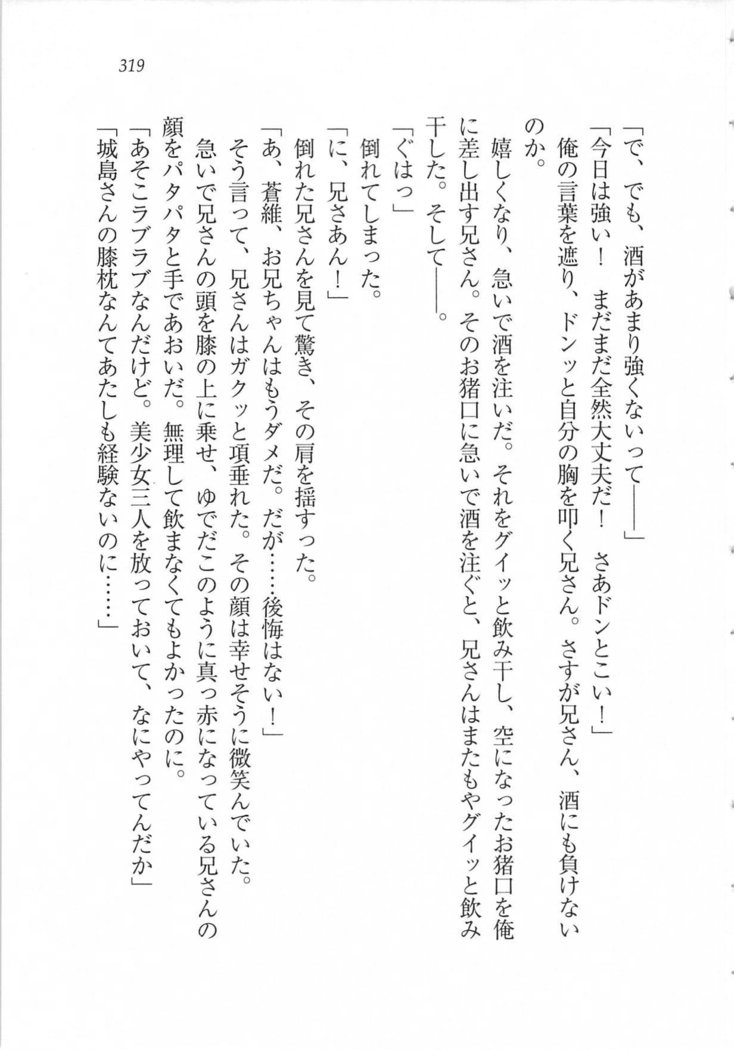 319
「で、でも、酒があまり強くないって――」
「今日は強い！　まだまだ全然大丈夫だ！　さあドンとこい！」
　俺の言葉を遮り、ドンッと自分の胸を叩く兄さん。さすが兄さん、酒にも負けない
のか。
　嬉しくなり、急いで酒を注いだ。それをグイッと飲み干し、空になったお猪口を俺
に差し出す兄さん。そのお猪口に急いで酒を注ぐと、兄さんはまたもやグイッと飲み
干した。そして――。
「ぐはっ」
　倒れてしまった。
「に、兄さあん！」
　倒れた兄さんを見て驚き、その肩を揺すった。
「あ、蒼維、お兄ちゃんはもうダメだ。だが……後悔はない！」
　そう言って、兄さんはガクッと項垂れた。その顔は幸せそうに微笑んでいた。
　急いで兄さんの頭を膝の上に乗せ、ゆでだこのように真っ赤になっている兄さんの
顔をパタパタと手であおいだ。無理して飲まなくてもよかったのに。
「あそこラブラブなんだけど。美少女三人を放っておいて、なにやってんだか」
「城島さんの膝枕なんてあたしも経験ないのに……」